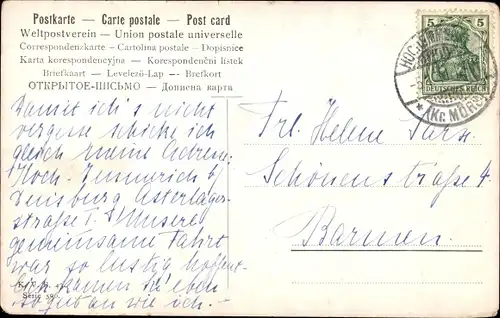 Postkarte — Carte postale — Post card
Weltpostverein — Union postale universelle
Correspondenzkarte — Cartolina postale — Dopisnice
Karta korespondencyjna — Korespondenční lístek
Briefkaart — Levelező-Lap — Brefkort
ОТКРЫТОЕ-ПИСЬМО — Дописна карта
5 5
DEUTSCHES REICH
(Kr. MÖRS)
Damit ich's nicht
vergesse schicke ich
gleich meine Adresse:
Koch.
Duisburg
strasse 1. Unsere
gemeinsame Fahrt
war so lustig hoffent-
lich kamen Sie eben
so gut an wie ich.—
Frl. Helene
Schönenstrasse 4
Barmen.
Serie